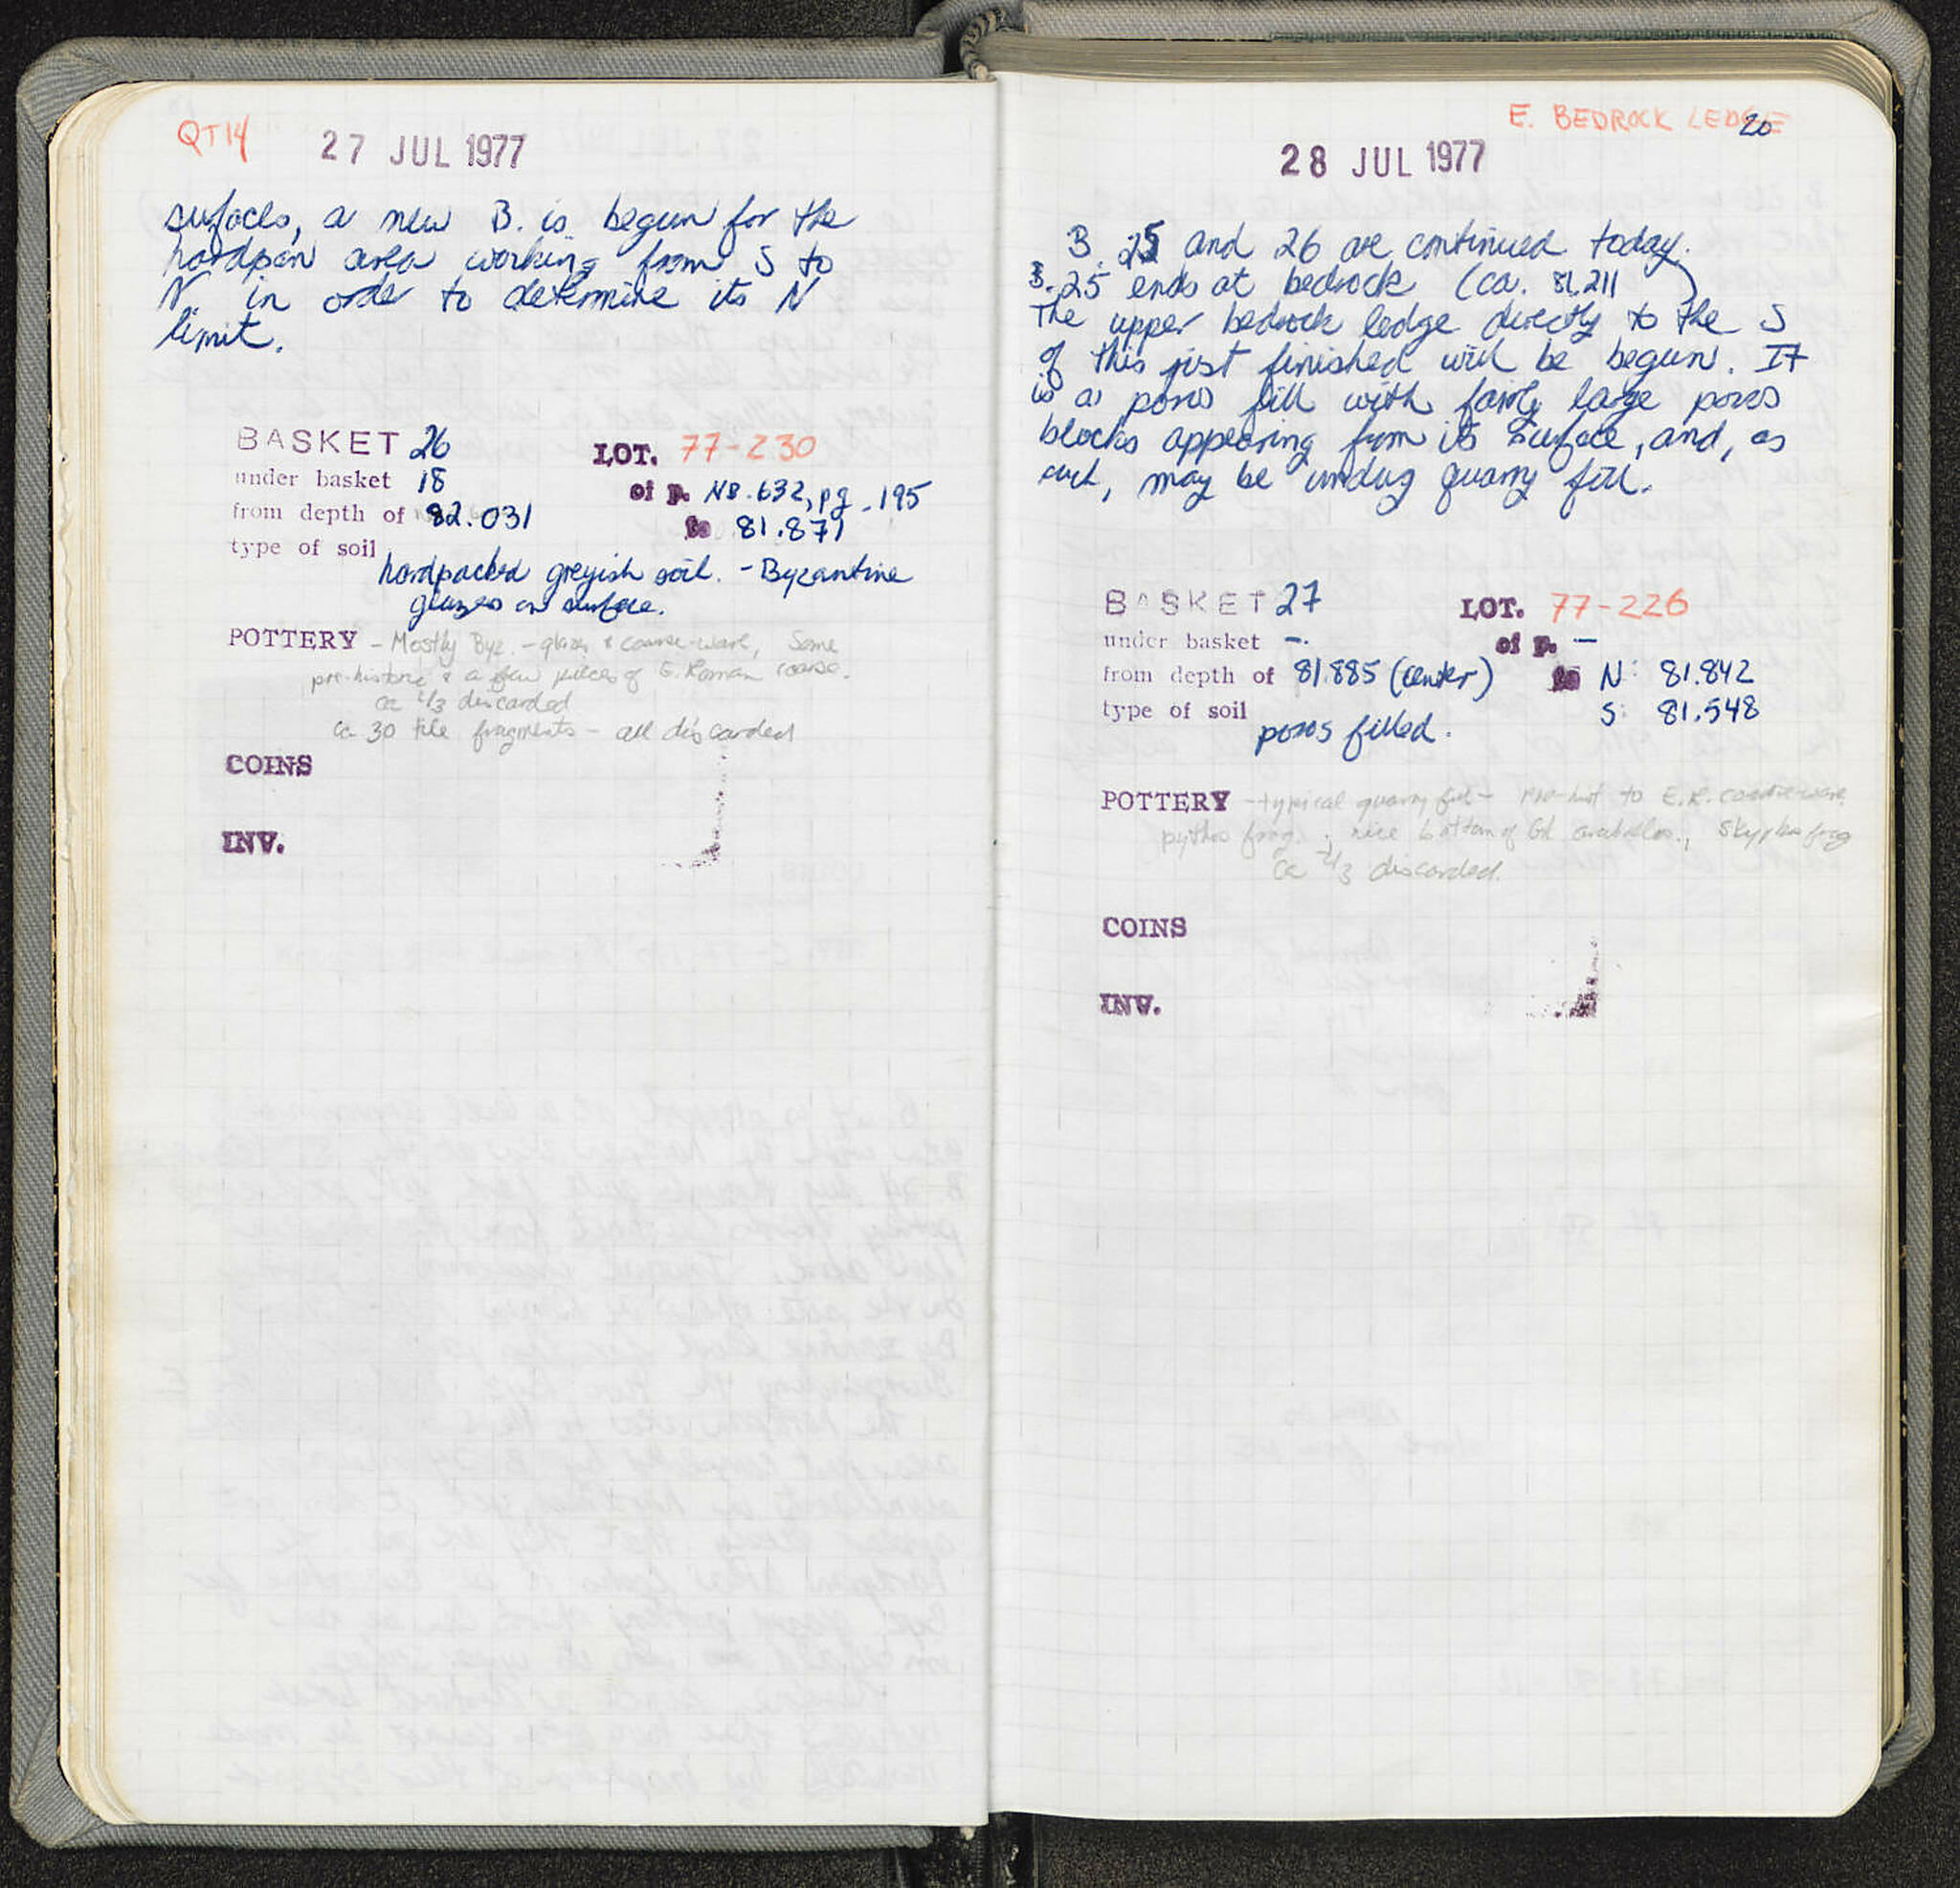 QT14
27 JUL 1977
surfaces, a new B. is begun for the
hardpan area working from S to
N. in order to determine its N
limit.
BASKET 26 LOT. 77-230
under basket 18 of p. NB. 632, pg. 195
from depth of 82.031 to 81.871
type of soil
hardpacked greyish soil. - Byzantine
glazes on surface.
POTTERY - Mostly Byz. - glazes & coarse-ware, Some
pre-historic & a few pieces of E. Roman coarse.
ca 2/3 discarded
ca 30 tile fragments - all discarded
COINS
INV.
E. BEDROCK LEDGE
20
28 JUL 1977
B. 25 and 26 are continued today.
B. 25 ends at bedrock (ca. 81.211)
The upper bedrock ledge directly to the S
of this just finished will be begun. It
is a poros fill with fairly large poros
blocks appearing from its surface, and, as
such, may be undug quarry fill.
BASKET 27 LOT. 77-226
under basket - of p. -
from depth of 81.885 (center) to N: 81.842
type of soil S: 81.548
poros filled.
POTTERY - typical quarry fill - pre-hist to E.R. coarse-ware
pythos frag.; nice bottom of Gk aryballos., skyphos frag
ca 2/3 discarded.
COINS
INV.